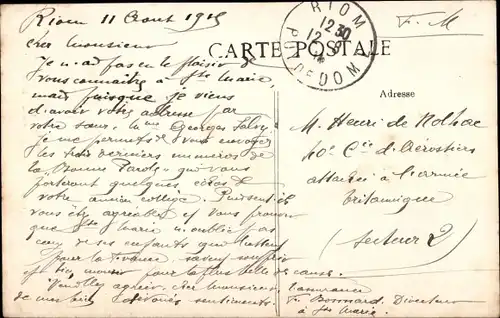 Riom 11 Aout 1915
Cher Monsieur
Je n'ai pas eu le plaisir de
vous connaître à Ste Marie,
mais puisque je viens
d'avoir votre adresse par
votre sœur, Mme Georges
je me permets de vous envoyer
les trois derniers numéros de
la Bonne Parole qui vous
porteront quelques échos de
votre ancien collège. Puissent-ils
vous être agréables et vous prouver
que Ste Marie n'oublie pas
ceux de ses enfants qui luttent
pour la France, savent souffrir
et mourir pour la plus belle des causes.
Veuillez agréer, cher Monsieur, l'assurance
de mes bien dévoués sentiments.
F. Directeur
à Ste Marie.
RIOM
12 30
12 - 8
PUY-DE-DOM
F. M
CARTE POSTALE
Adresse
M. Henri de Nolhac
40e Cie d'Aérostiers
attachée à l'armée
britannique
(Secteur 2)